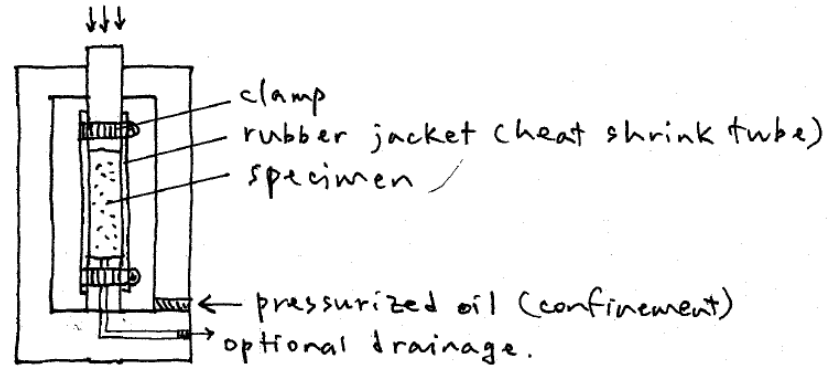 clamp
rubber jacket (heat shrink tube)
specimen
pressurized oil (confinement)
optional drainage.